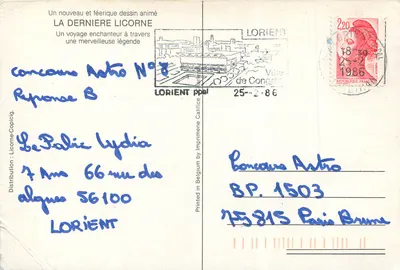 Un nouveau et féerique dessin animé
LA DERNIERE LICORNE
Un voyage enchanteur à travers
une merveilleuse légende
Concours Astro N°8
Reponse B
Le Palic Lydia
7 Ans 66 rue des
algues 56100
LORIENT
Distribution : Licorne-Copicig.
Printed in Belgium by Imprimerie Catifice
LORIENT
Ville
de Congrès
LORIENT ppal
25--2-86
2,20
18 H
25-2
1986
Concours Astro
BP. 1503
75815 Paris Brune